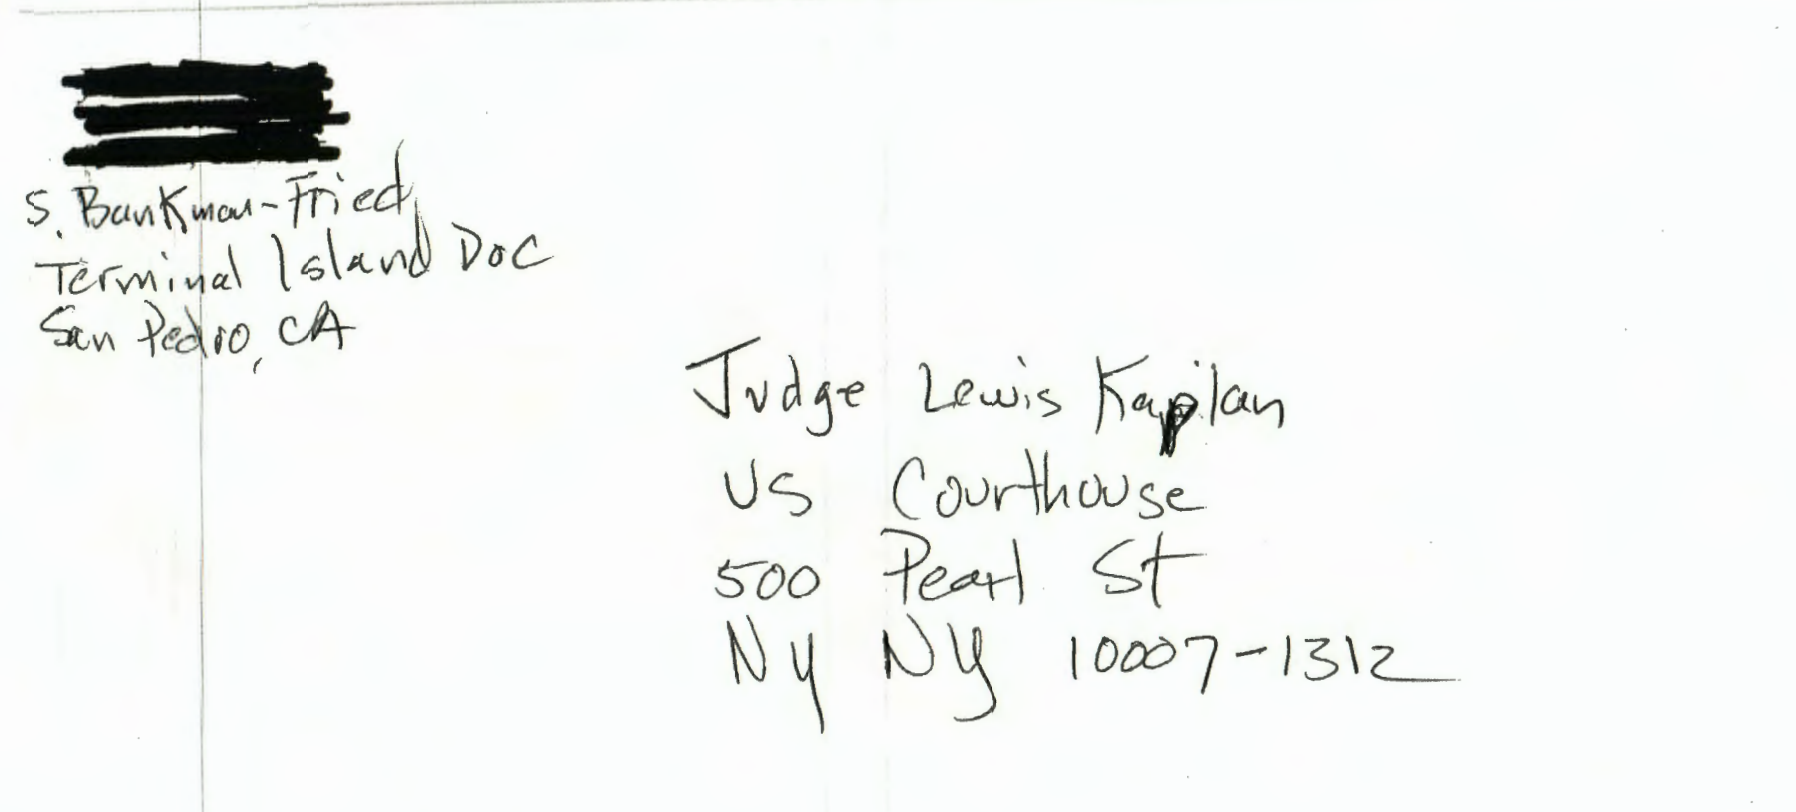 S. Bankman-Fried
Terminal Island DOC
San Pedro, CA
Judge Lewis Kaplan
US Courthouse
500 Pearl St
NY NY 10007-1312